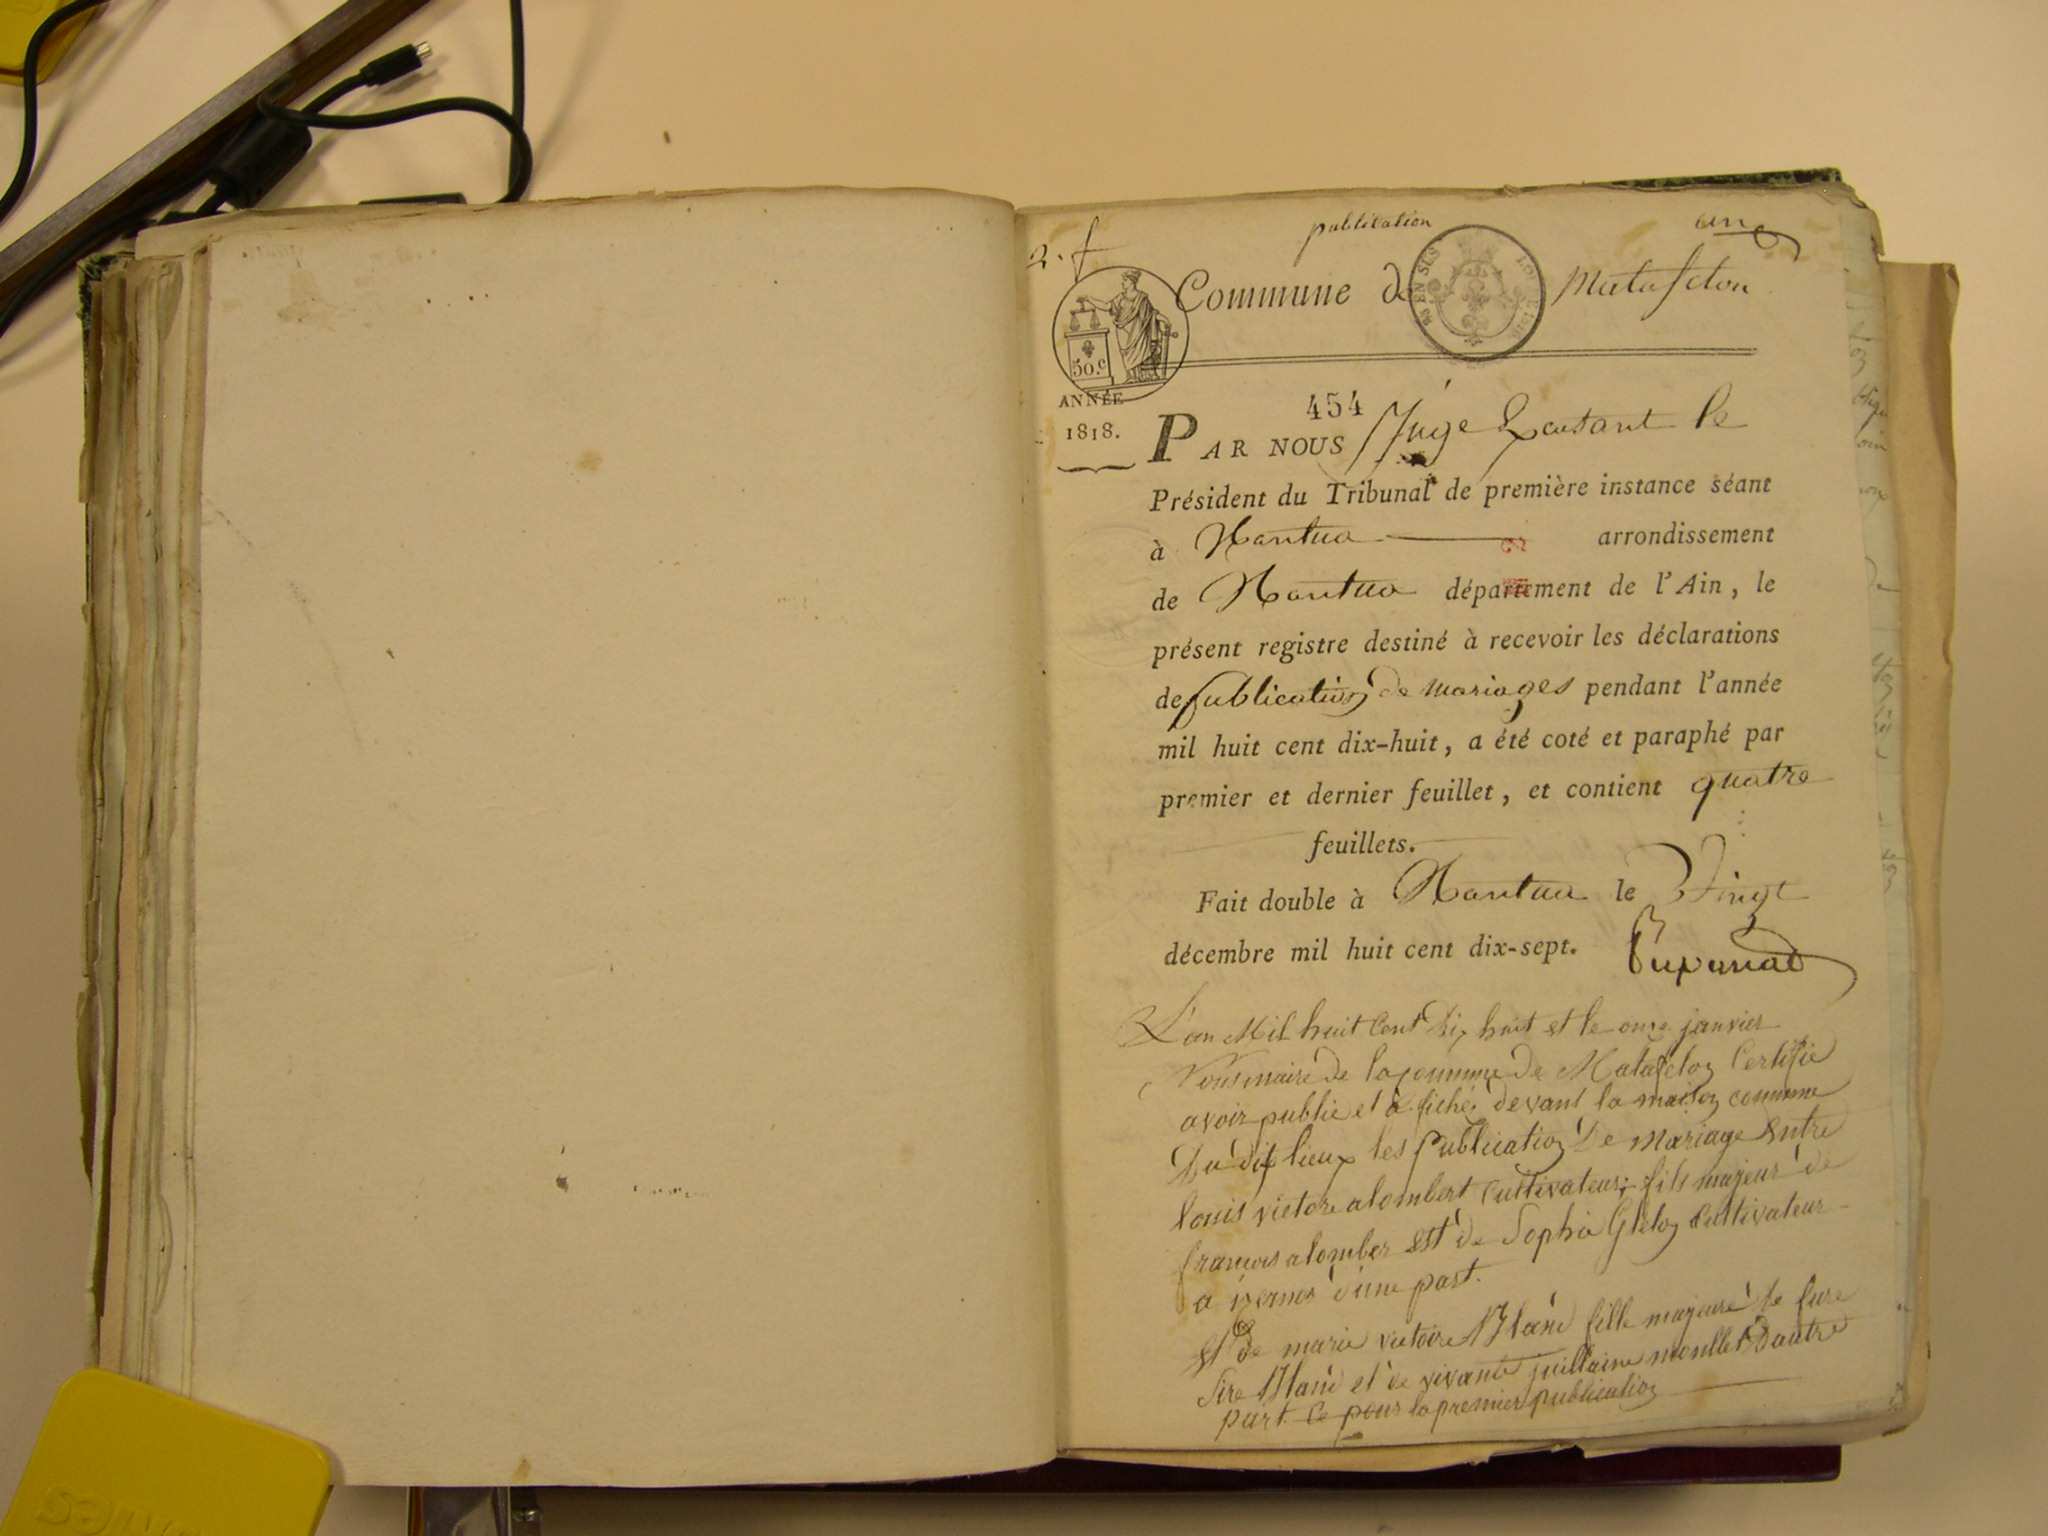 publication
un
2. f
Commune de Matafelon
50.c
ANNÉE
1818.
454
PAR NOUS Juge faisant le
Président du Tribunal de première instance séant
à Nantua arrondissement
de Nantua département de l'Ain, le
présent registre destiné à recevoir les déclarations
de publication de mariages pendant l'année
mil huit cent dix-huit, a été coté et paraphé par
premier et dernier feuillet, et contient quatre
feuillets.
Fait double à Nantua le Vingt
décembre mil huit cent dix-sept.
L'an Mil huit Cent Dix huit et le onze janvier
Nous maire de la commune de Matafelon Certifie
avoir publie et afiché devant la maison commune
Du dit lieux les publication De mariage Entre
louis victore alombert Cultivateur, fils majeur de
francois alomber Est de Sophie Gleton Cultivateur
a d'une part.
Et de marie victoire Blanc fille majeure de fure
Sire Blanc et de vivante juillaine monllet Dautre
part. Ce pour la premier publication